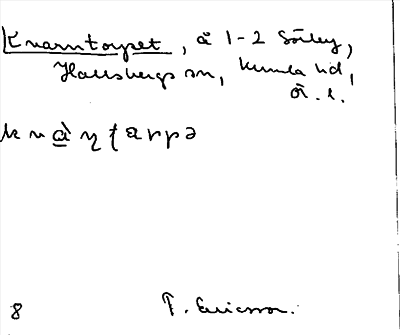 Kvarntorpet, å 1-2 Sörby,
Hallsbergs sn, Kumla hd,
Ö. l.
k v à̲ ɳ ʈ a r p ə
8 T. Ericsson.